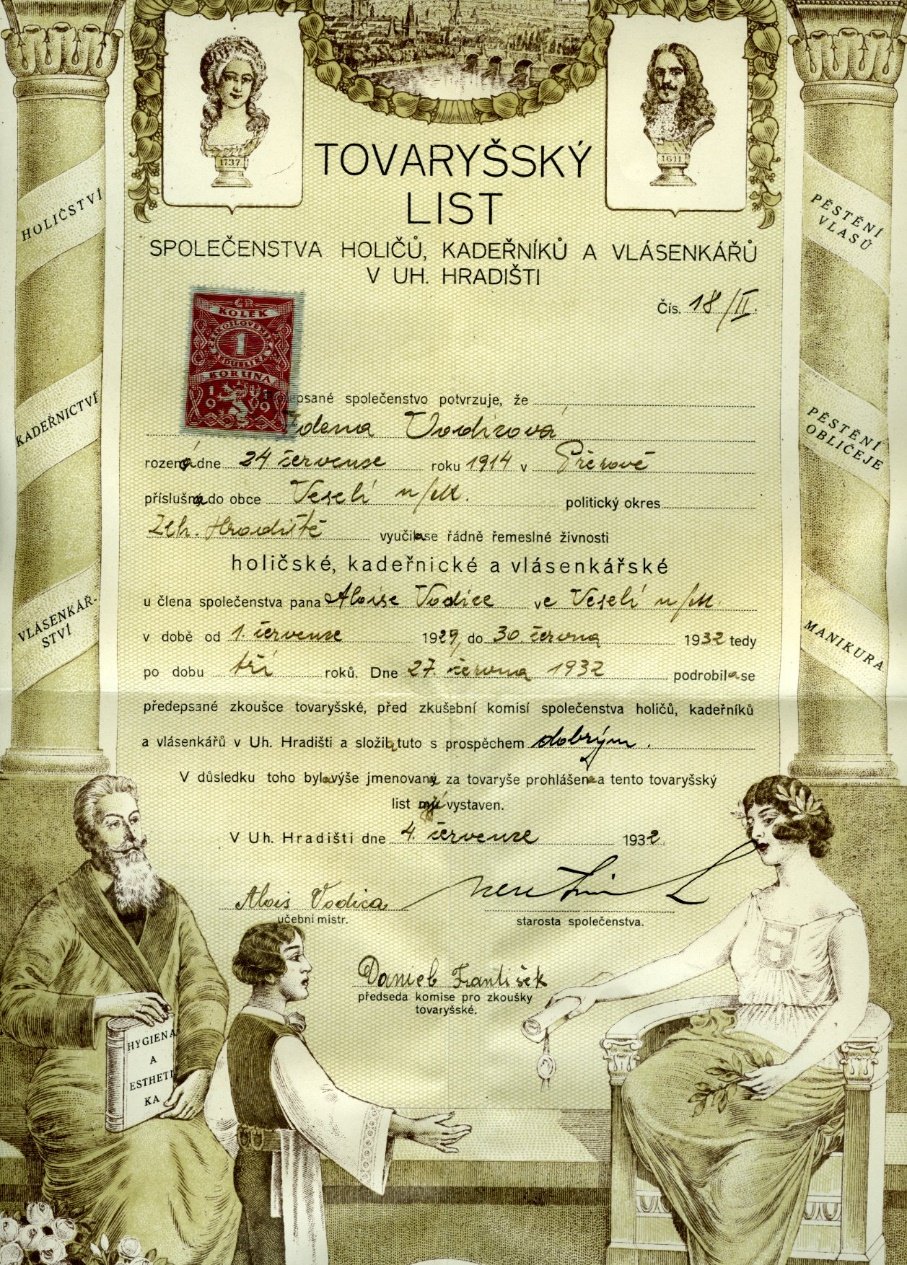 1737
1611
TOVARYŠSKÝ
LIST
SPOLEČENSTVA HOLIČŮ, KADEŘNÍKŮ A VLÁSENKÁŘŮ
V UH. HRADIŠTI
Čís. 18/II.
HOLIČSTVÍ
KADEŘNICTVÍ
VLÁSENKÁŘ-
STVÍ
PĚSTĚNÍ
VLASŮ
PĚSTĚNÍ
OBLIČEJE
MANIKURA
KOLEK
1
KORUNA
19
depsané společenstvo potvrzuje, že
Zdena Vodicová
rozená dne 24 července roku 1914 v Přerově
příslušná do obce Veselí n/M. politický okres
Uh. Hradiště vyučila se řádně řemeslné živnosti
holičské, kadeřnické a vlásenkářské
u člena společenstva pana Aloise Vodice ve Veselí n/M
v době od 1. července 1929, do 30. června 1932 tedy
po dobu tří roků. Dne 27. června 1932 podrobila se
předepsané zkoušce tovaryšské, před zkušební komisí společenstva holičů, kadeřníků
a vlásenkářů v Uh. Hradišti a složila tuto s prospěchem dobrým.
V důsledku toho byla výše jmenovaná za tovaryše prohlášena a tento tovaryšský
list jí vystaven.
V Uh. Hradišti dne 4. července 1932.
Alois Vodica
učební mistr.
starosta společenstva.
Daněk František
předseda komise pro zkoušky
tovaryšské.
HYGIENA
A
ESTHETI
KA